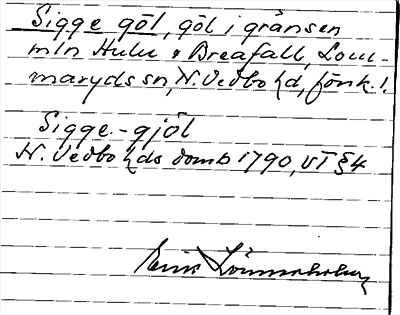 Sigge göl, göl i gränsen
mln Hulu & Breafall, Lom-
maryds sn, N. Vedbo hd, Jönk. l.
Sigge-gjöl
N. Vedbo hds domb 1790, VI § 4